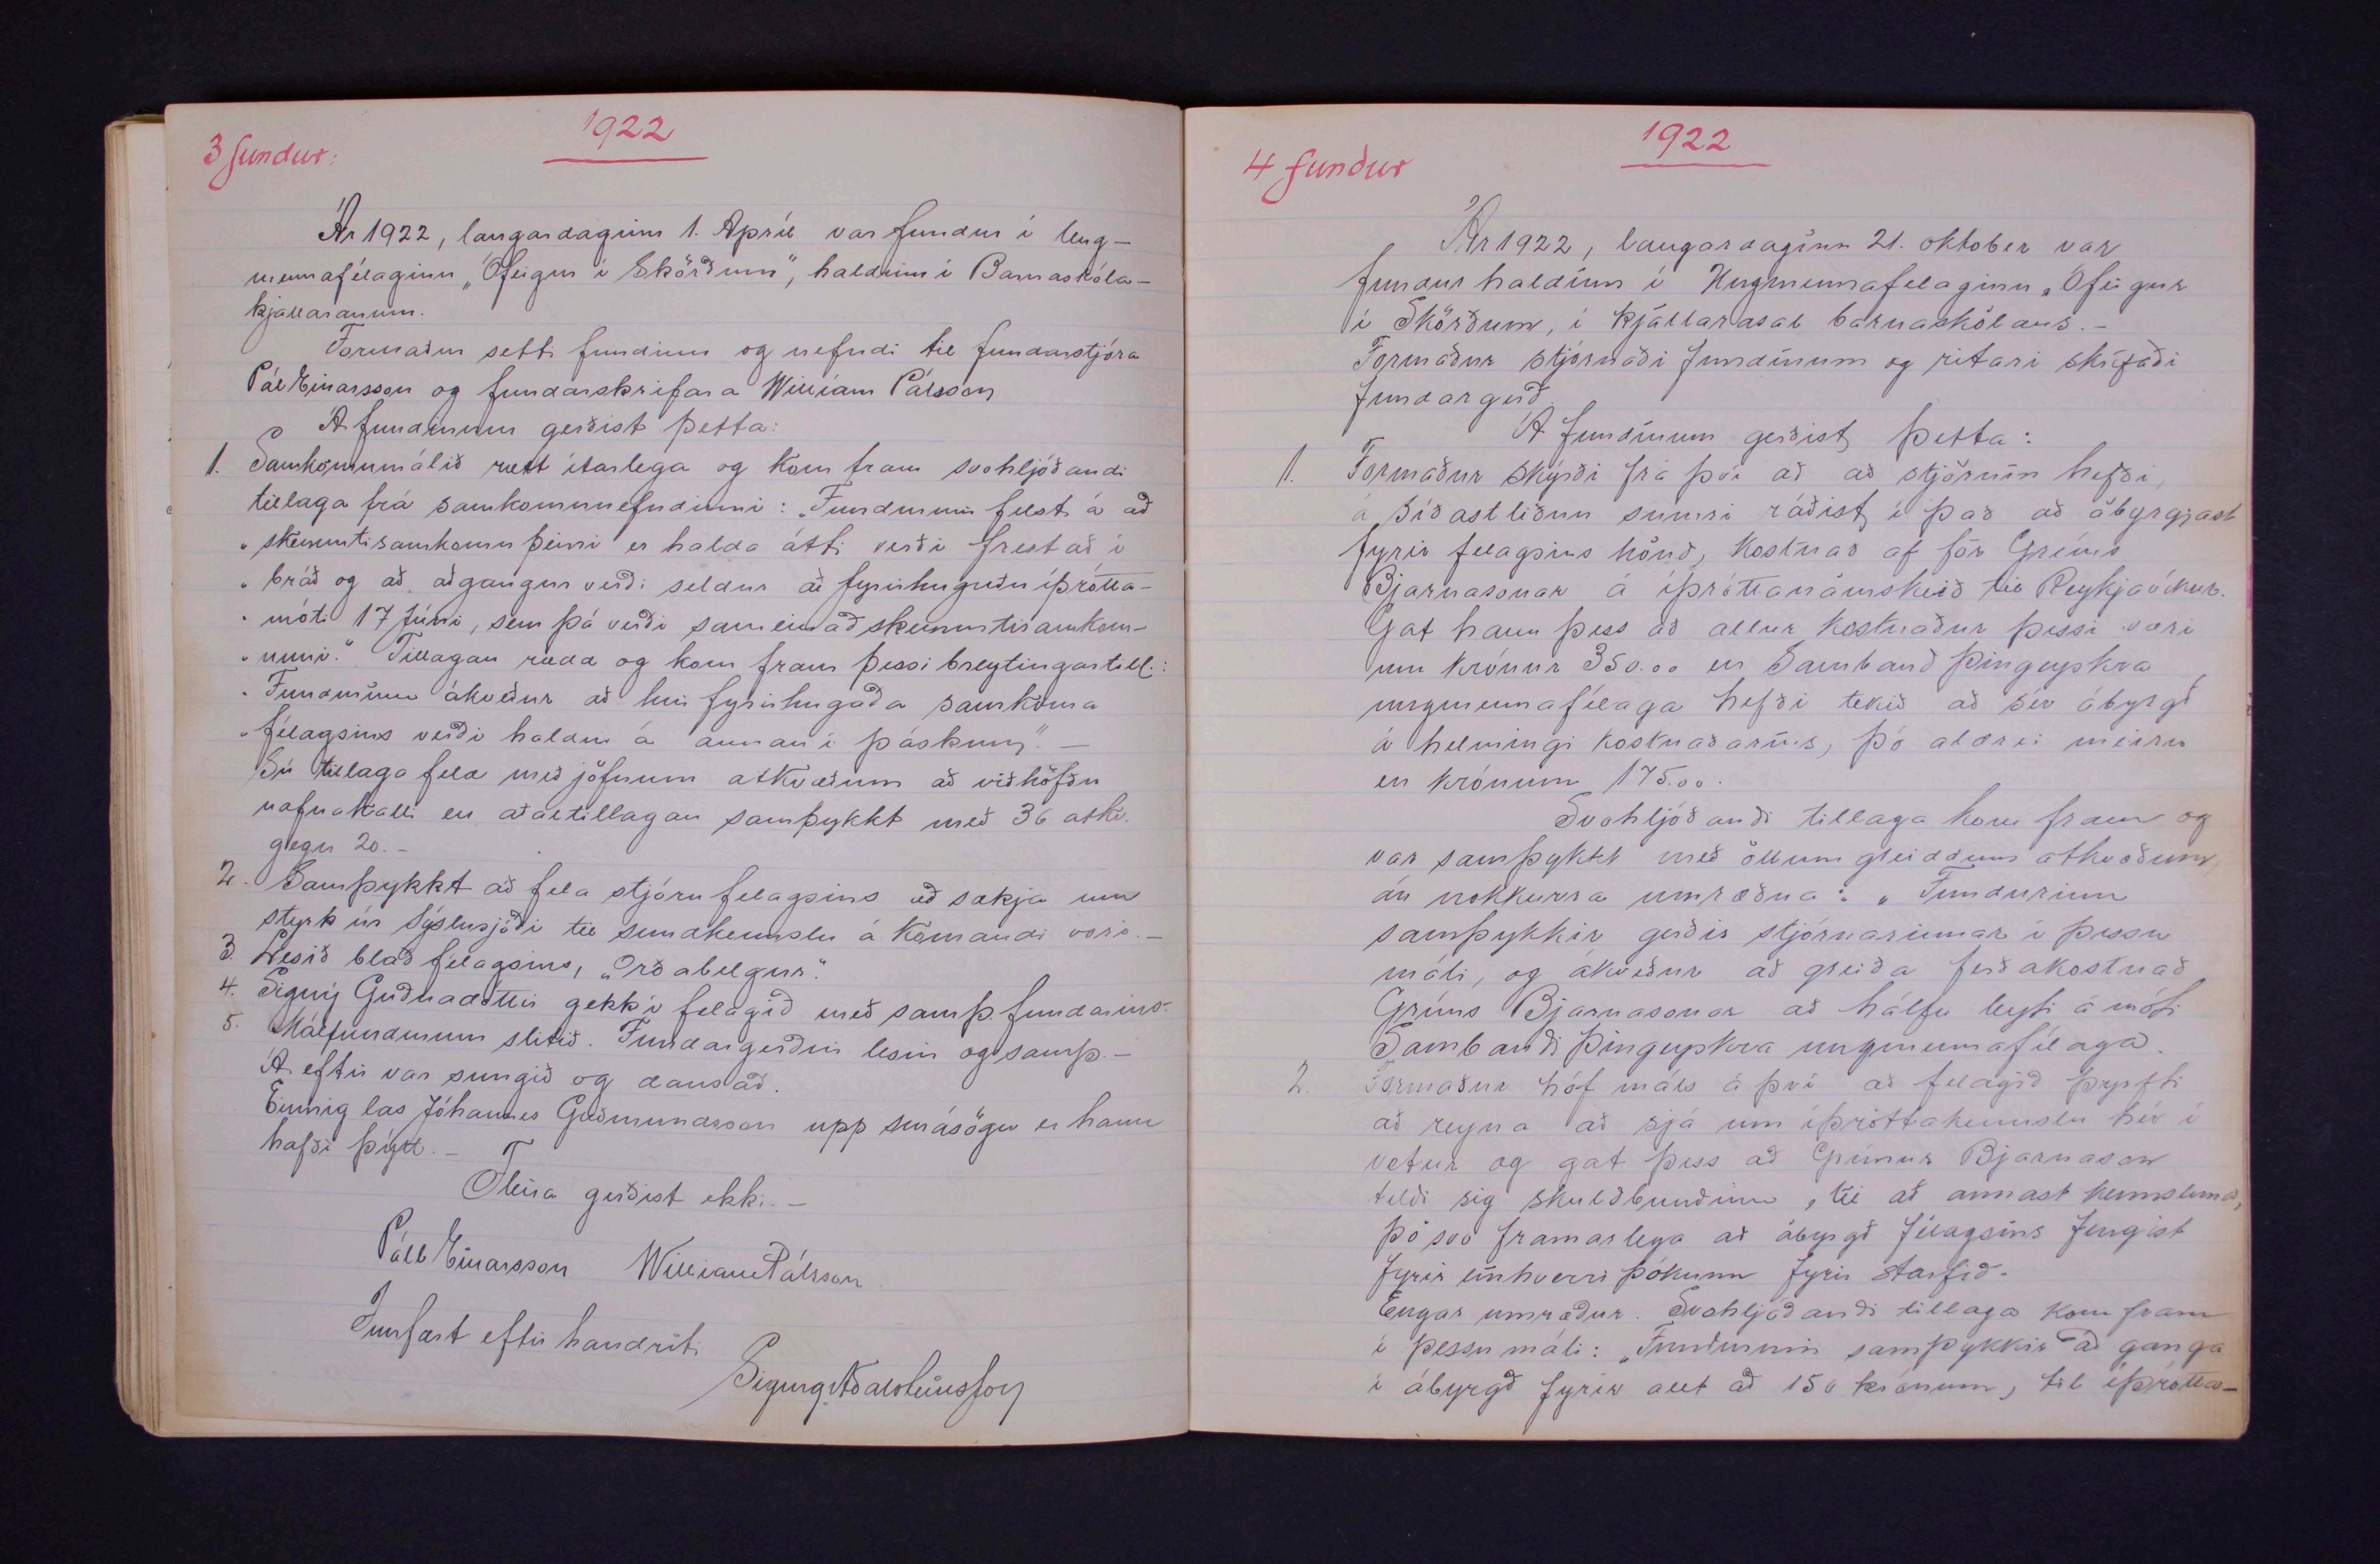 1922
3 fundur:
Ár 1922, laugardaginn 1. Apríl var fundur í Ung-
mennafélaginn „Ófeigur í Skörðum", haldinn í Barnaskóla-
kjallaranum.
Formaður setti fundinn og nefndi til fundarstjóra
Pál Einarsson og fundarskrifara William Pálsson
Á fundinum gerðist þetta:
1. Samkomumálið rætt ítarlega og kom fram svohljóðandi
tillaga frá samkomunefndinni: „Fundurinn felst á að
„ skemmtisamkomu þeirri er halda átti verði frestað í
„ bráð og að aðgangur verði seldur að fyrirhuguðu íþrótta-
„ móti 17 Júní, sem þá verði sameinað skemmtisamkom-
„ unni." Tillagan rædd og kom fram þessi breytingartill.:
„ Fundurinn ákveður að hin fyrirhugaða samkoma
„ félagsins verði haldin á annan í páskum". –
Sú tillaga feld með jöfnum atkvæðum að viðhöfðu
nafnakalli en aðaltillagan samþykkt með 36 atkv.
gegn 20. –
2. Samþykkt að fela stjórn felagsins að sækja um
styrk úr Sýslusjóði til sundkennslu á komandi vori. –
3. Lesið blað félagsins, „Orðabelgur".
4. Signý Guðnadóttir gekk í felagið með samþ. fundarins.
5. Málfundinum slitið. Fundargerðin lesin og samþ. –
Á eftir var sungið og dansað.
Einnig las Jóhannes Guðmundsson upp smásögu er hann
hafði þýtt. –
Fleira gerðist ekki. –
Páll Einarsson William Pálsson
Innfært eftir handriti
1922
4 fundur
Ár 1922, laugardaginn 21. oktober var
fundur haldinn í Ungmennafelaginu „Ófeigur
í Skörðum, í kjallarasal barnaskólans. –
Formaður stjórnaði fundinum og ritari skrifaði
fundargerð
Á fundinum gerðist þetta:
1. Formaður skýrði frá því að að stjórnin hefði,
á síðastliðnu sumri ráðist í það að ábyrgjast
fyrir felagsins hönd, kostnað af för Gríms
Bjarnasonar á íþróttanámskeið til Reykjavíkur.
Gat hann þess að allur kostnaður þessi væri
um krónur 350.00 en Samband Þingeyskra
ungmennafélaga hefði tekið að sér ábyrgð
á helmingi kostnaðarins, þó aldrei meiru
en krónum 175.00.
Svohljóðandi tillaga kom fram og
var samþykkt með öllum greiddum atkvæðum,
án nokkurra umræðna: „Fundurinn
samþykkir gerðir stjórnarinnar í þessu
máli, og ákveður að greiða ferðakostnað
Gríms Bjarnasonar að hálfu leyti á móti
Sambandi Þingeyskra ungmennafélaga.
2. Formaður hóf máls á því að felagið þyrfti
að reyna að sjá um íþróttakennslu hér í
vetur og gat þess að Grímur Bjarnason
teldi sig skuldbundinn, til að annast kennsluna,
þó svo framarlega að ábyrgð félagsins fengist
fyrir einhverri þóknun fyrir starfið.
Engar umræður. Svohljóðandi tillaga kom fram
í þessu máli: „Fundurinn samþykkir að ganga
í ábyrgð fyrir allt að 150 krónum, til íþrótta-